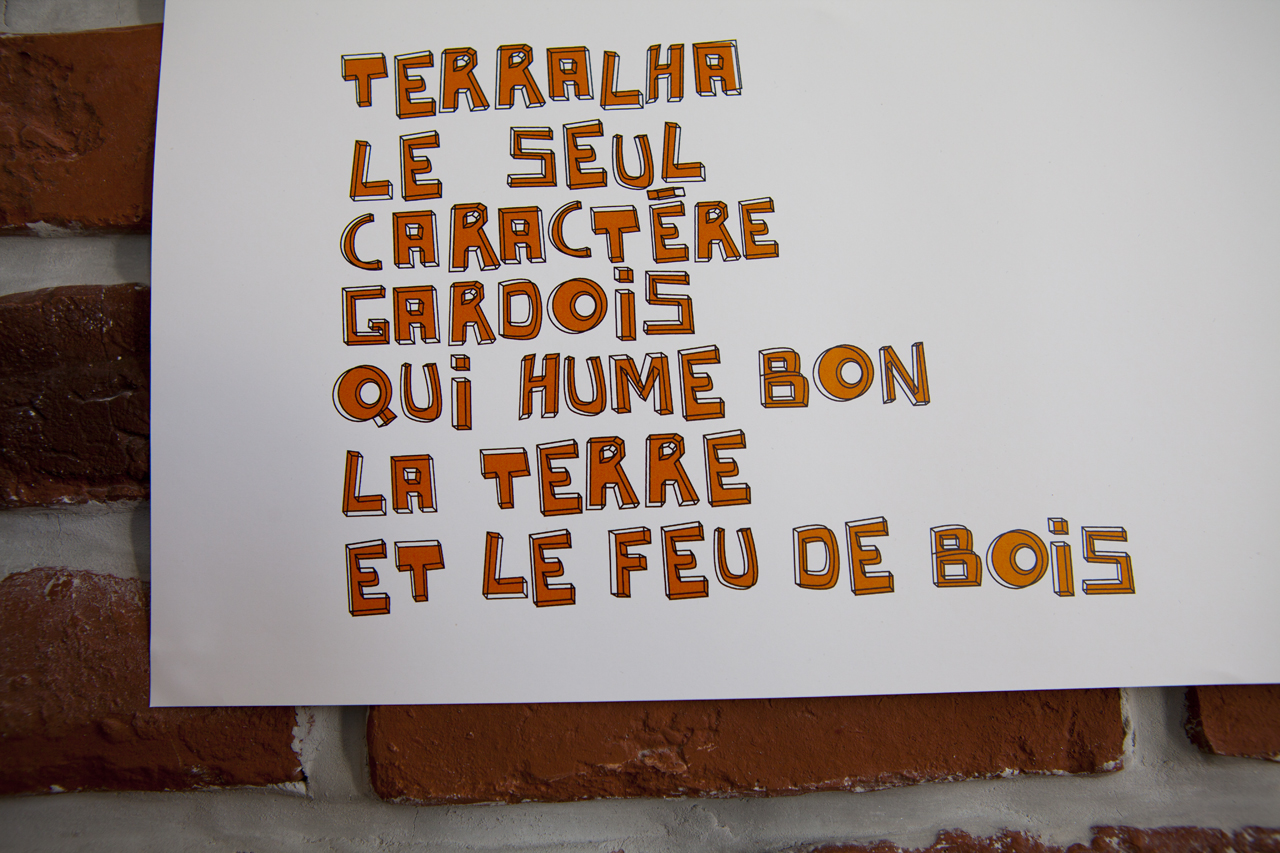 TERRALHA
LE SEUL
CARACTĒRE
GARDOiS
QUi HUME BON
LA TERRE
ET LE FEU DE BOiS